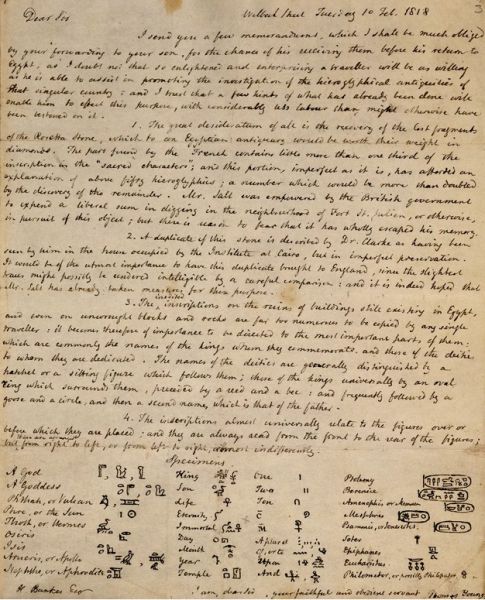 3
Dear Sir
Welbeck Street Tuesday 10 Feb. 1818
I send you a few memorandums, which I shall be much obliged
by your forwarding to your son, for the chance of his receiving them before his return to
Egypt, as I doubt not that so enlightened and enterprising a traveller will be as willing
as he is able to assist in promoting the investigation of the hieroglyphical antiquities of
that singular country: and I trust that a few hints of what has already been done will
enable him to effect this purpose, with considerably less labour than might otherwise have
been bestowed on it.
1. The great desideratum of all is the recovery of the lost fragments
of the Rosetta stone, which to an Egyptian antiquary would be worth their weight in
diamonds. The part found by the French contains little more than one third of the
inscription in the "sacred characters"; and this portion, imperfect as it is, has afforded an
explanation of above fifty hieroglyphics; a number which would be more than doubled
by the discovery of the remainder. Mr. Salt was empowered by the British government
to expend a liberal sum in digging in the neighbourhood of Fort St. Julien, or otherwise,
in pursuit of this object; but there is reason to fear that it has wholly escaped his memory.
2. A duplicate of this stone is described by Dr. Clarke as having been
seen by him in the house occupied by the Institute at Cairo, but in imperfect preservation.
It would be of the utmost importance to have this duplicate brought to England, since the slightest
traces might possibly be rendered intelligible by a careful comparison: and it is indeed hoped that
Mr. Salt has already taken measures for this purpose.
3. The inscriptions on the ruins of buildings still existing in Egypt,
and even on unwrought blocks and rocks are far too numerous to be copied by any single
traveller: it becomes therefore of importance to be directed to the most important parts of them:
which are commonly the names of the kings whom they commemorate and those of the deities
to whom they are dedicated. The names of the deities are generally distinguished by a
hatchet or a sitting figure which follows them; those of the kings universally by an oval
ring which surrounds them, preceded by a reed and a bee: and frequently followed by a
goose and a circle, and then a second name, which is that of the father.
4. The inscriptions almost universally relate to the figures over or
before which they are placed; and they are always read from the front to the rear of the figures;
but from right to left, or from left to right, almost indifferently.
Specimens
A God King One Ptolemy
A Goddess Son Two Berenice
Phthah, or Vulcan Life Ten Amenophis or Memnon
Phre, or the Sun Eternity Mesphres
Thoth, or Hermes Immortal
Osiris Day A plural Sotes
Isis Month Of, or to Epiphanes
Arueris, or Apollo Year Upon Eucharistus
Nephthe, or Aphrodite Temple And Philometor, or possibly Philopator
H Bankes Esq
I am, dear sir, your faithful and obedient servant Thomas Young